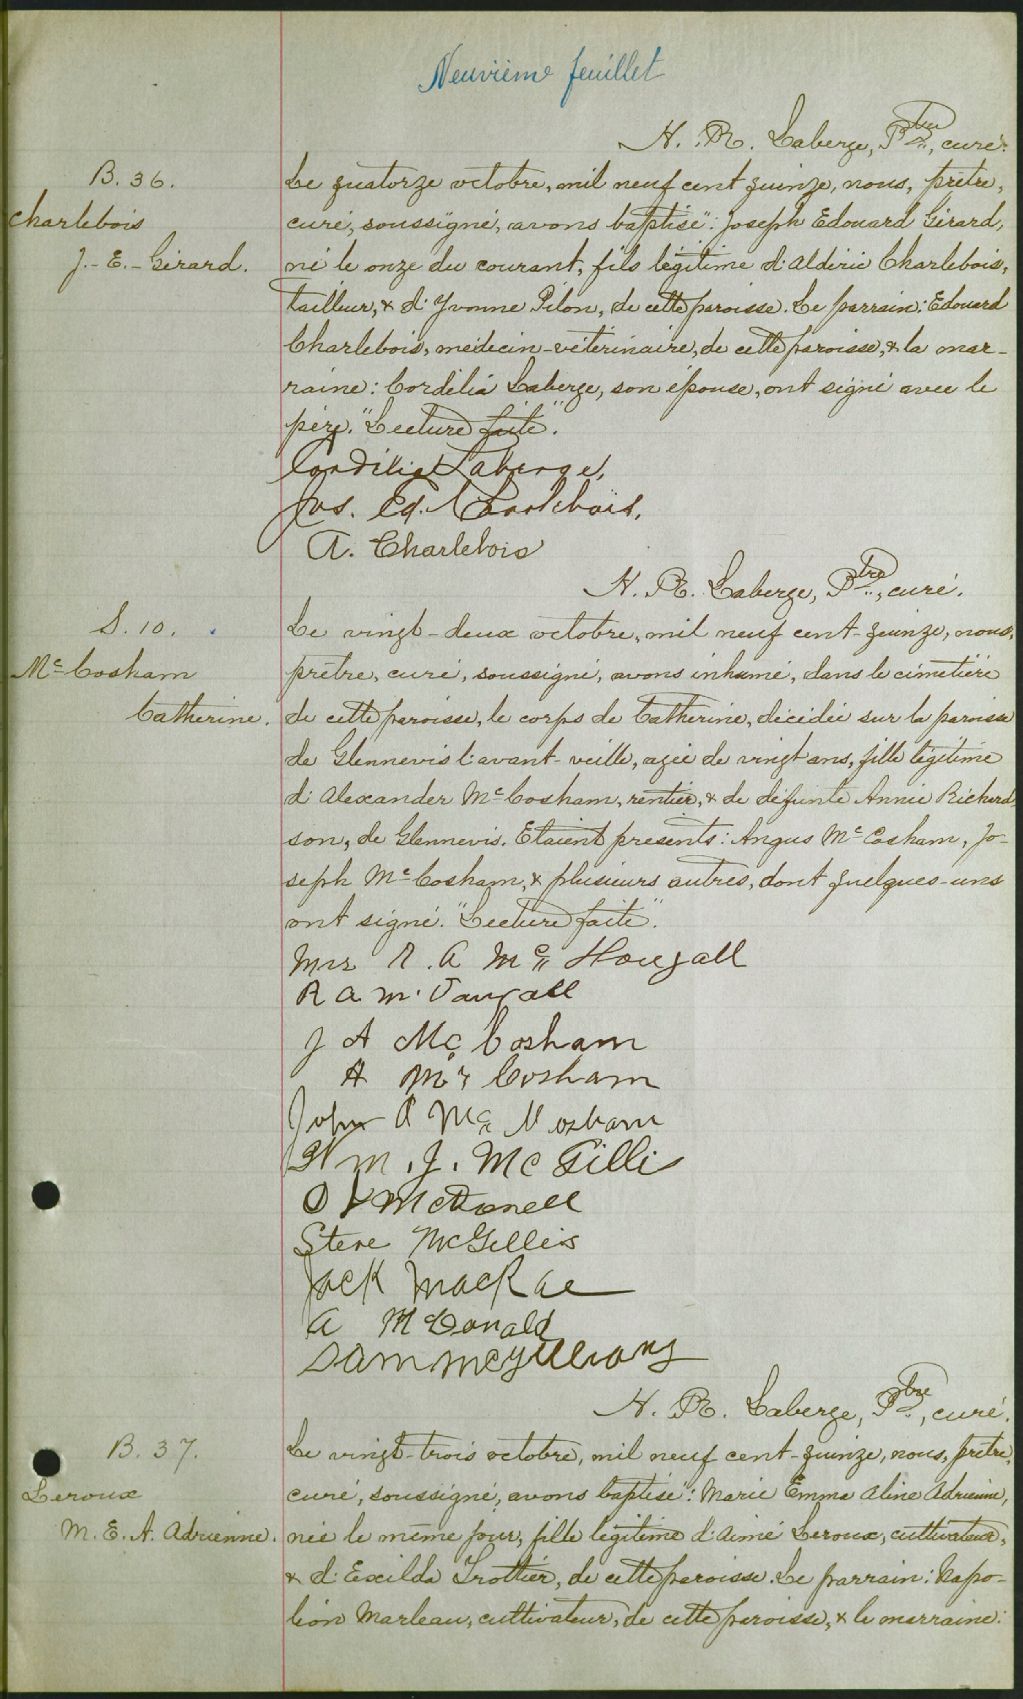 Neuvième feuillet
H. R. Laberge, Ptre, curé.
B. 36.
Charlebois
J.-E.-Gérard.
Le quatorze octobre, mil neuf cent quinze, nous, prêtre,
curé, soussigné, avons baptisé: Joseph Edouard Gérard,
né le onze du courant, fils légitime d'Aldéric Charlebois,
tailleur, & d'Yvonne Pilon, de cette paroisse. Le parrain: Edouard
Charlebois, médecin-vétérinaire, de cette paroisse, & la mar-
raine: Cordélia Laberge, son épouse, ont signé avec le
père. "Lecture faite".
Cordélia Laberge,
Jos. Ed. Charlebois,
A. Charlebois
H. R. Laberge, Ptre, curé.
S. 10.
Mc Cosham
Catherine.
Le vingt-deux octobre, mil neuf cent-quinze, nous,
prêtre, curé, soussigné, avons inhumé, dans le cimetière
de cette paroisse, le corps de Catherine, décédée sur la paroisse
de Glennevis l'avant-veille, agée de vingt ans, fille légitime
d'Alexander Mc Cosham, rentier, & de défunte Annie Richard-
son, de Glennevis. Etaient présents: Angus Mc Cosham, Jo-
seph Mc Cosham, & plusieurs autres, dont quelques-uns
ont signé. "Lecture faite".
Mrs R. A Mc Dougall
R A Mc Dougall
J A Mc Cosham
A Mc Cosham
John A Mc Cosham
Wm. J. McGillis
D McDonell
Steve McGillis
Jack MacRae
A McDonald
Dam
H. R. Laberge, Ptre, curé.
B. 37.
Leroux
M. E. A. Adrienne.
Le vingt-trois octobre, mil neuf cent-quinze, nous, prêtre,
curé, soussigné, avons baptisé: Marie Emma Aline Adrienne,
née le même jour, fille légitime d'Aimé Leroux, cultivateur,
& d'Exilda Trottier, de cette paroisse. Le parrain: Napo-
léon Marleau, cultivateur, de cette paroisse, & la marraine: